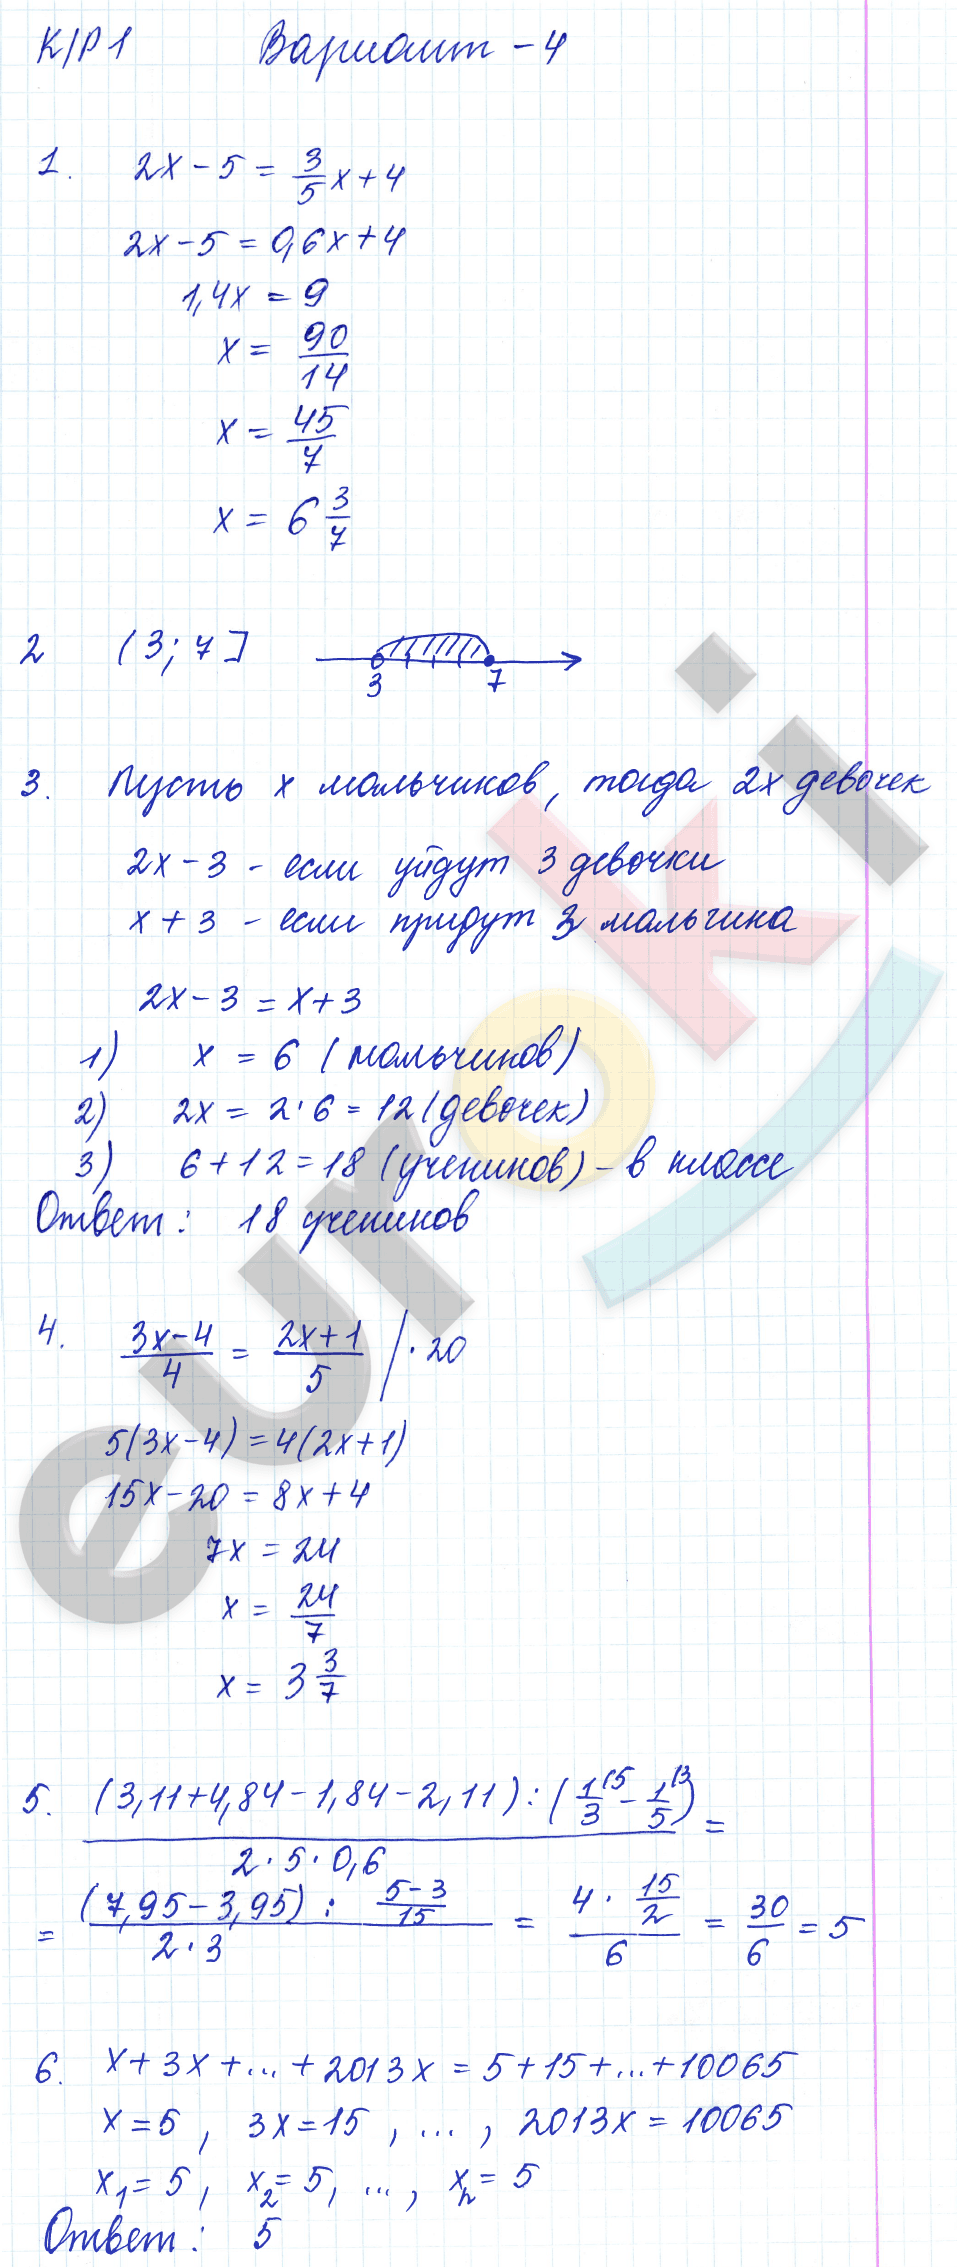 К/Р 1 Вариант - 4
1. 2x - 5 = 3/5 x + 4
2x - 5 = 0,6x + 4
1,4x = 9
x = 90/14
x = 45/7
x = 6 3/7
2 (3; 7]
3 7
3. Пусть x мальчиков, тогда 2x девочек
2x - 3 - если уйдут 3 девочки
x + 3 - если придут 3 мальчика
2x - 3 = x + 3
1) x = 6 (мальчиков)
2) 2x = 2 · 6 = 12 (девочек)
3) 6 + 12 = 18 (учеников) - в классе
Ответ: 18 учеников
4. (3x - 4)/4 = (2x + 1)/5 | · 20
5(3x - 4) = 4(2x + 1)
15x - 20 = 8x + 4
7x = 24
x = 24/7
x = 3 3/7
5. ((3,11 + 4,84 - 1,84 - 2,11) : (1/3 (5 - 1/5 (3))/(2 · 5 · 0,6) =
= ((7,95 - 3,95) : (5 - 3)/15)/(2 · 3) = (4 · 15/2)/6 = 30/6 = 5
6. x + 3x + ... + 2013x = 5 + 15 + ... + 10065
x = 5, 3x = 15, ..., 2013x = 10065
x₁ = 5, x₂ = 5, ..., xₙ = 5
Ответ: 5
euroki